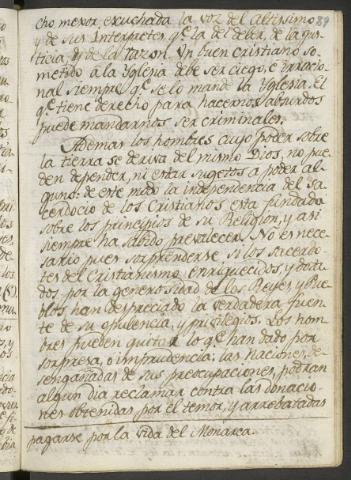 cho mexor escuchada la voz del altissimo 89
y de sus Interpretes, qe. la del deber, de la jus-
ticia, y de la razon. Un buen cristiano so-
metido à la Yglesia debe ser ciego, è irracio-
nal siempre qe. se lo mande la Yglesia. El
qe. tiene derecho para hacernos absurdos
puede mandarnos ser criminales.
Ademas los hombres cuyo poder sobre
la tierra se deriva del mismo Dios, no pue-
den depender, ni estar sugetos a poder al-
guno: de este modo la independencia del Sa-
cerdocio de los Cristianos esta fundada
sobre los principios de su Religion, y asi
siempre ha sabido prevalecer. No es nece-
sario pues sorprenderse si los sacerdo-
tes del Cristianismo enriquecidos, y dota-
dos por la generosidad de los Reyes, y Pue-
blos, han despreciado la verdadera fuen-
te de su opulencia, y privilegios. Los hom-
bres pueden quitar lo qe. han dado por
sorpresa, ò imprudencia: las naciones de-
sengañadas de sus preocupaciones, podran
algun dia reclamar contra las donacio-
nes obtenidas por el temor, y arrobatadas
pagarse por la vida del Monarca.